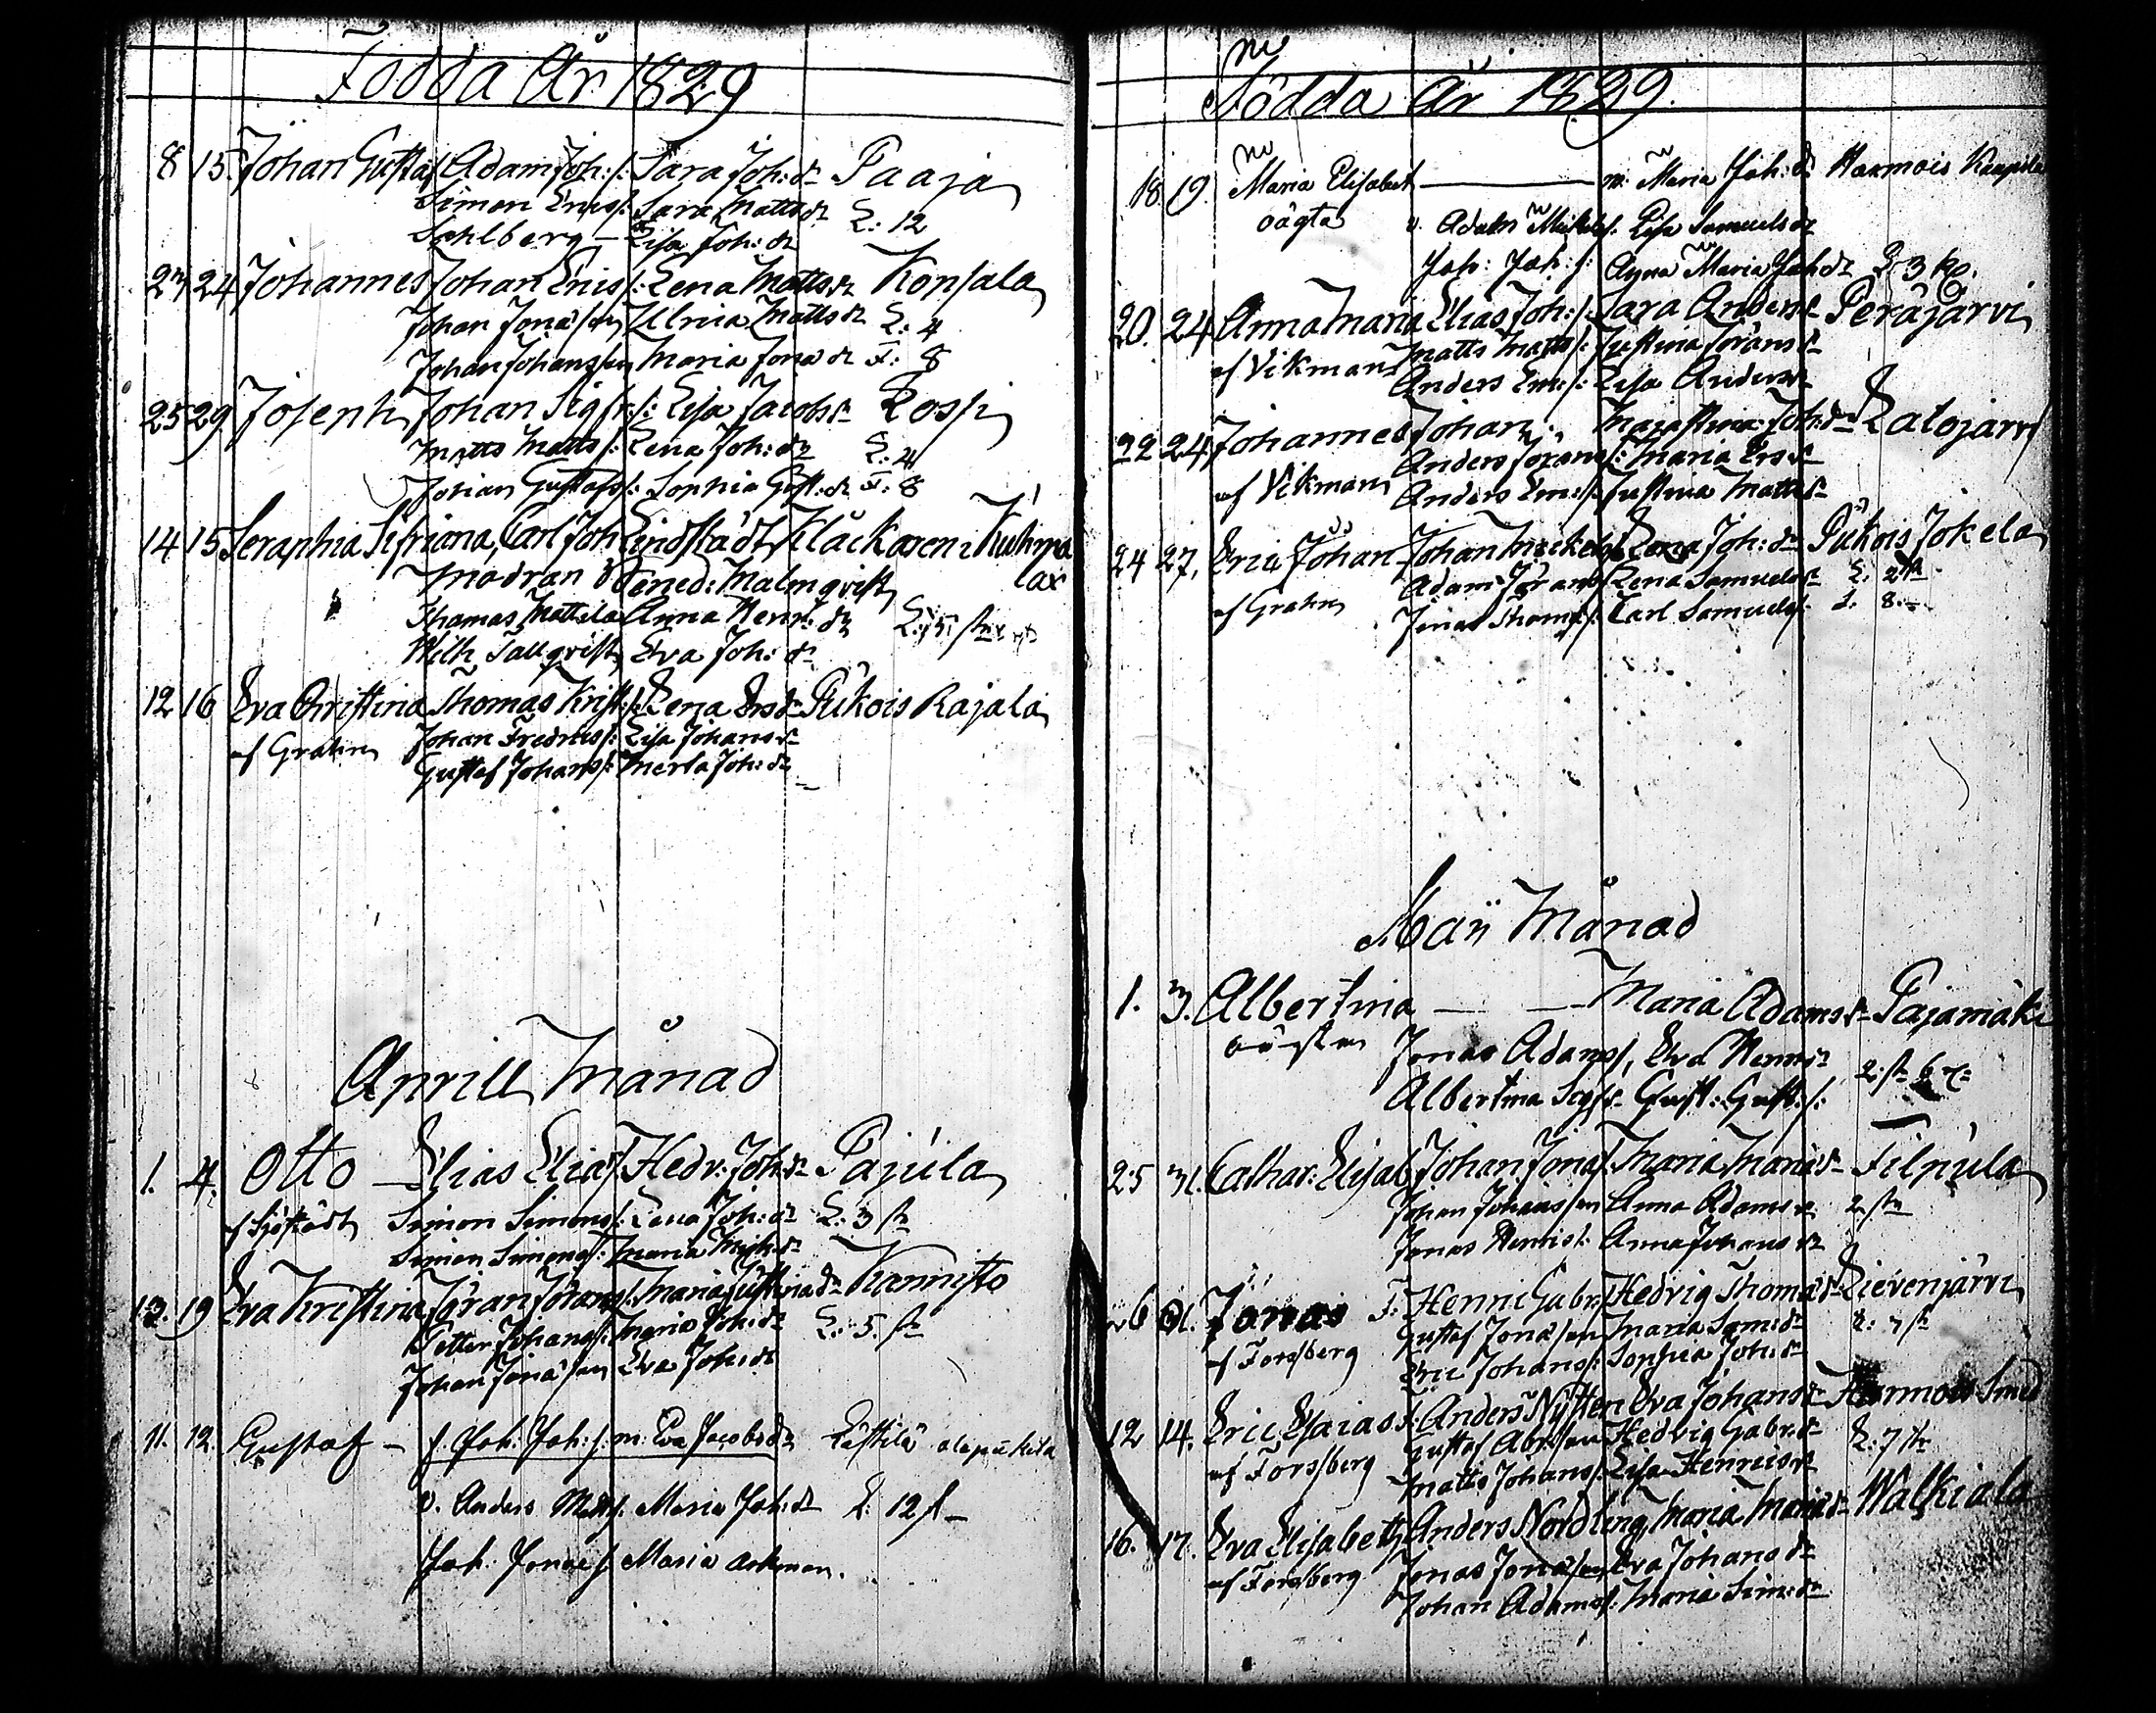 Födda År 1829
8 15. Johan Gustaf Adam Joh:s. Sara Joh:dr Paaja
Simon Erics. Sara Matts dr L: 12
Sahlberg — Lisa Joh: dr
23 24 Johannes Johan Erics: Lena Matts dr Konsala
Johan Jonasson Ulrica Matts dr L: 4
Johan Johansson Maria Jonae dr F: 8
25 29 Joseph Johan Sigfr:s: Lisa Jacobs dr Rossi
Matts Matts: Lena Joh: dr L: 4
Johan Gustafs: Sophia Gust: dr F: 8
14 15 Seraphia Carl Joh Lindstädt Klåckaren i Kuhma
modran Bened: Malmqvist lax
Thomas Mattila Anna Henr: dr L: 15
Wilh. Tallqvist Eva Joh: dr
12 16 Eva Christina Thomas Krist:s. Lena Ers dr Pükois Rajala
af Grahn Johan Fredrics: Lisa Johans dr
Gustaf Johans: Merta Joh: dr
Aprill Månad
1. 4. Otto — Elias Elias: Hedv: Joh: dr Pajula
af Sjöstädt Simon Simons: Lena Joh: dr L: 3 st
Simon Simons: Maria Mich: dr
13. 19 Eva Kristina Jöran Jörans: Maria Justina dr Kannisto
Petter Johans: Maria Joh: dr L: 5. st
Johan Jonasson Eva Joh: dr
11. 12. Gustaf — f. Joh: Joh: s: m: Eva Jacobs dr
v. Anders Matts: Maria Joh: dr L: 12 s —
Joh: Jonae s: Maria
Födda År 1829.
18. 19. Maria Elisabet — m: Maria Joh: dr Harmois
oägta v. Adam Mickels: Lisa Samuels dr
Joh: Joh: s: Anna Maria Joh: dr L 3 ko.
20. 24 Anna Maria Elias Joh:s: Sara Anders dr Peräjärvi
af Vikman Matts Matts: Justina Jörans dr
Anders Em:s: Lisa Anders dr
22 24. Johannes Johan Maja Stina Joh: dr Ratojarvi
af Vikman Anders Jörans: Maria Ers dr
Anders Em:s: Justina Matts dr
24 27. Eric Johan Johan Mickels: Lena Joh: dr Pükois Jokela
af Grahn Adam Jörans: Lena Samuels dr L: 2
Jonas Thoms: Carl Samuels: 8.
Maÿ Månad
1. 3. Albertina — — Maria Adams dr Pajamäki
Jonas Adams, Eva Henrics dr 2 st 6
Albertina Sigfr dr Gust: Gust: s:
25 31. Cathar: Elisab Johan Jonas: Maria Maria dr Filpula
Johan Johansson Anna Adams dr 2 st
Jonas Henrics: Anna Johans dr
26 31. Jonas F: Henric Gabr: Hedvig Thoma dr Lievenjärvi
af Forssberg Gustaf Jonasson Maria Sam: dr L: 7 st
Eric Johans: Sophia Joh: dr
12 14. Eric Esaias f: Anders Nysten Eva Johans dr Harmois Smed
af Forssberg Gustaf Abr:son Hedvig Gabr: dr L: 7 st
Matts Johans: Lisa Henrics dr
16. 17. Eva Elisabeth Anders Nordling Maria Maria dr Walkiala
af Forssberg Jonas Jonasson Eva Johans dr
Johan Adams: Maria Sim: dr